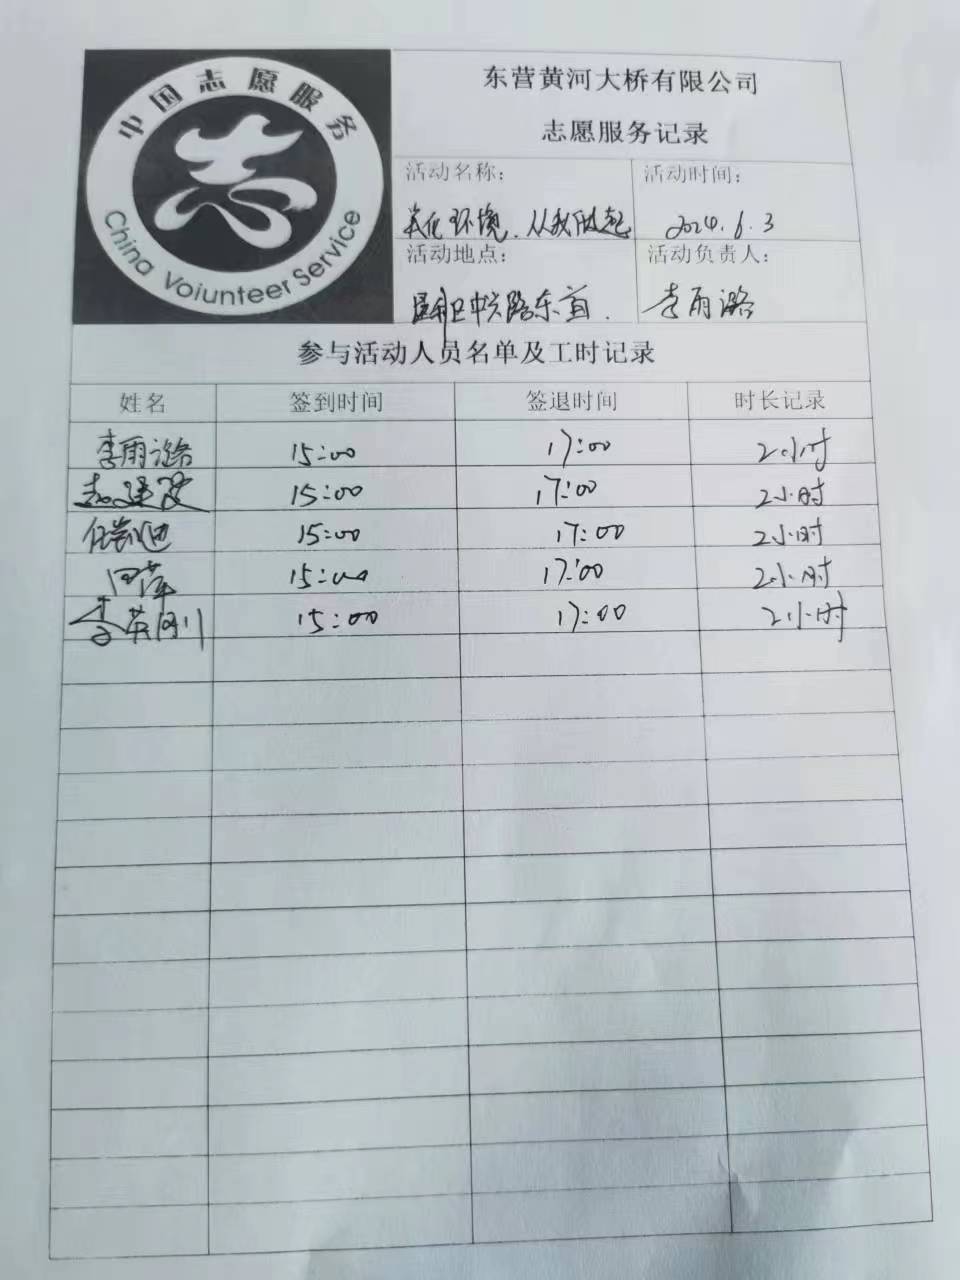 中国志愿服务
China Voiunteer Service
东营黄河大桥有限公司
志愿服务记录
活动名称：
活动时间：
美化环境.从我做起
2024.6.3
活动地点：
活动负责人：
中兴路东首.
李雨潞
参与活动人员名单及工时记录
姓名 签到时间 签退时间 时长记录
李雨潞 15:00 17:00 2小时
15:00 17:00 2小时
任凯迪 15:00 17:00 2小时
田萍 15:00 17:00 2小时
李英刚 15:00 17:00 2小时